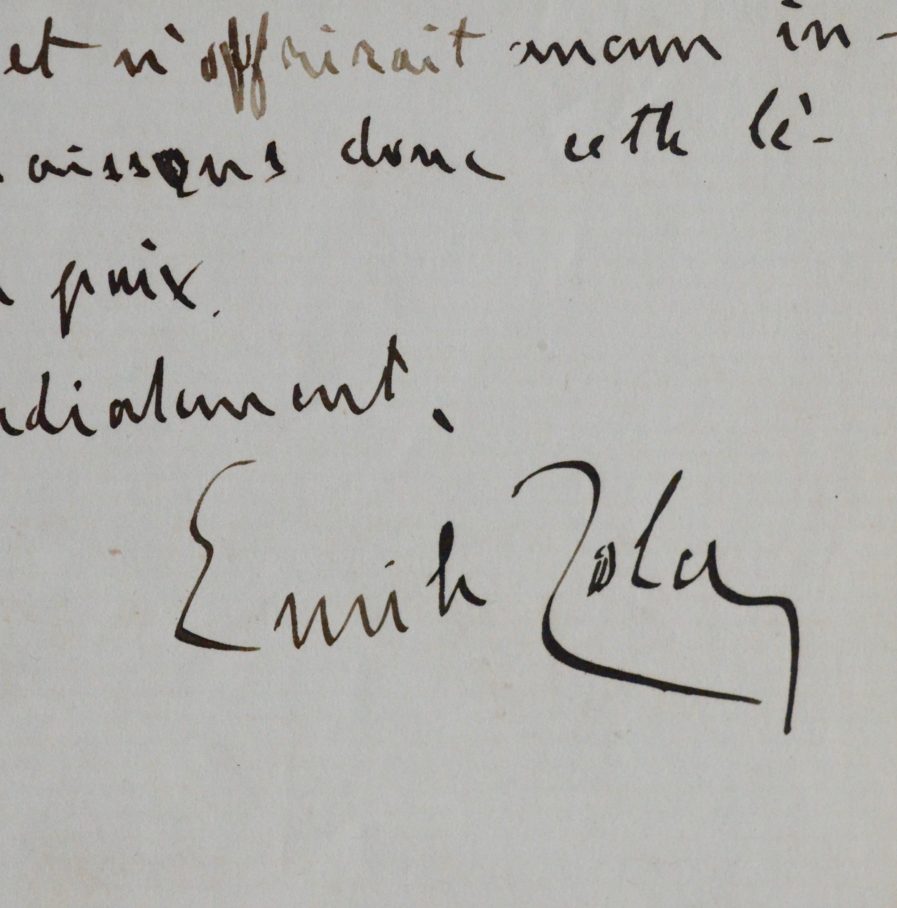 et n'offrirait aucun in-
aissons donc cette lé-
paix.
dialement.
Emile Zola